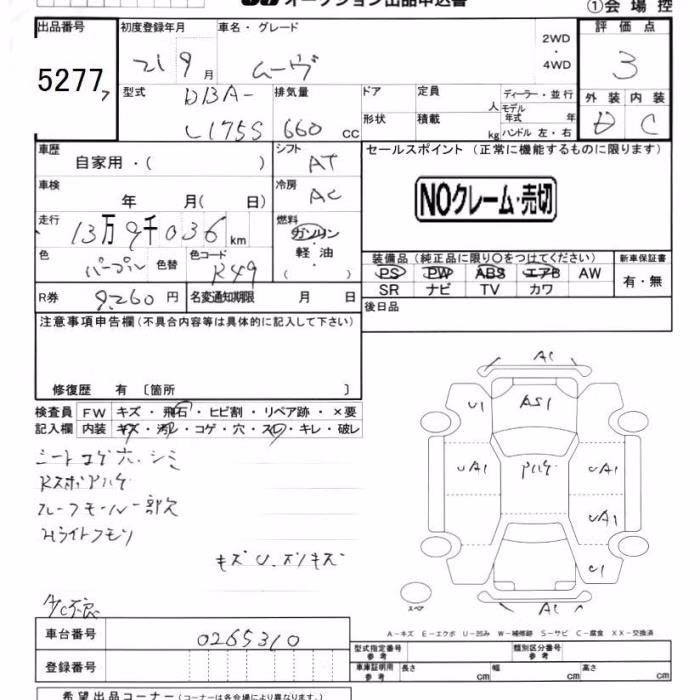 オークション出品申込書
①会場控
出品番号 初度登録年月 車名・グレード 評価点
5277 21 9月 ムーヴ 2WD ・ 4WD 3
型式 DBA- L175S 排気量 660cc ドア 定員 人 ディーラー・並行
形状 積載 kg モデル年式 年 ハンドル 左・右
外装 内装
D C
車歴 自家用・( ) シフト AT セールスポイント (正常に機能するものに限ります)
車検 年 月( 日) 冷房 AC NOクレーム・売切
走行 13万9千036km 燃料 ガソリン 軽油 ( )
色 パープル 色替 色コード R49
装備品 (純正品に限り○をつけてください) 新車保証書
PS PW ABS エアB AW 有・無
SR ナビ TV カワ
R券 9,260円 名変通知期限 月 日 後日品
注意事項申告欄 (不具合内容等は具体的に記入して下さい)
修復歴 有 〔箇所 〕
検査員 FW キズ・飛石・ヒビ割・リペア跡・×要
記入欄 内装 キズ・汚レ・コゲ・穴・スレ・キレ・破レ
シートコゲ穴、シミ
RスポAハゲ
ルーフモール一部欠
ヘッドライトクモリ
キズU、スリキズ
A/C不良
A1
U1 AS1
UA1 Aハゲ UA1
UA1
U1
A1
スペア
A-キズ E-エクボ U-凹み W-補修跡 S-サビ C-腐食 XX-交換済
車台番号 0265310
登録番号
型式指定番号 参考 類別区分番号 参考
車庫証明用 参考 長さ cm 幅 cm 高さ cm
希望出品コーナー (コーナーは各会場により異なります。)